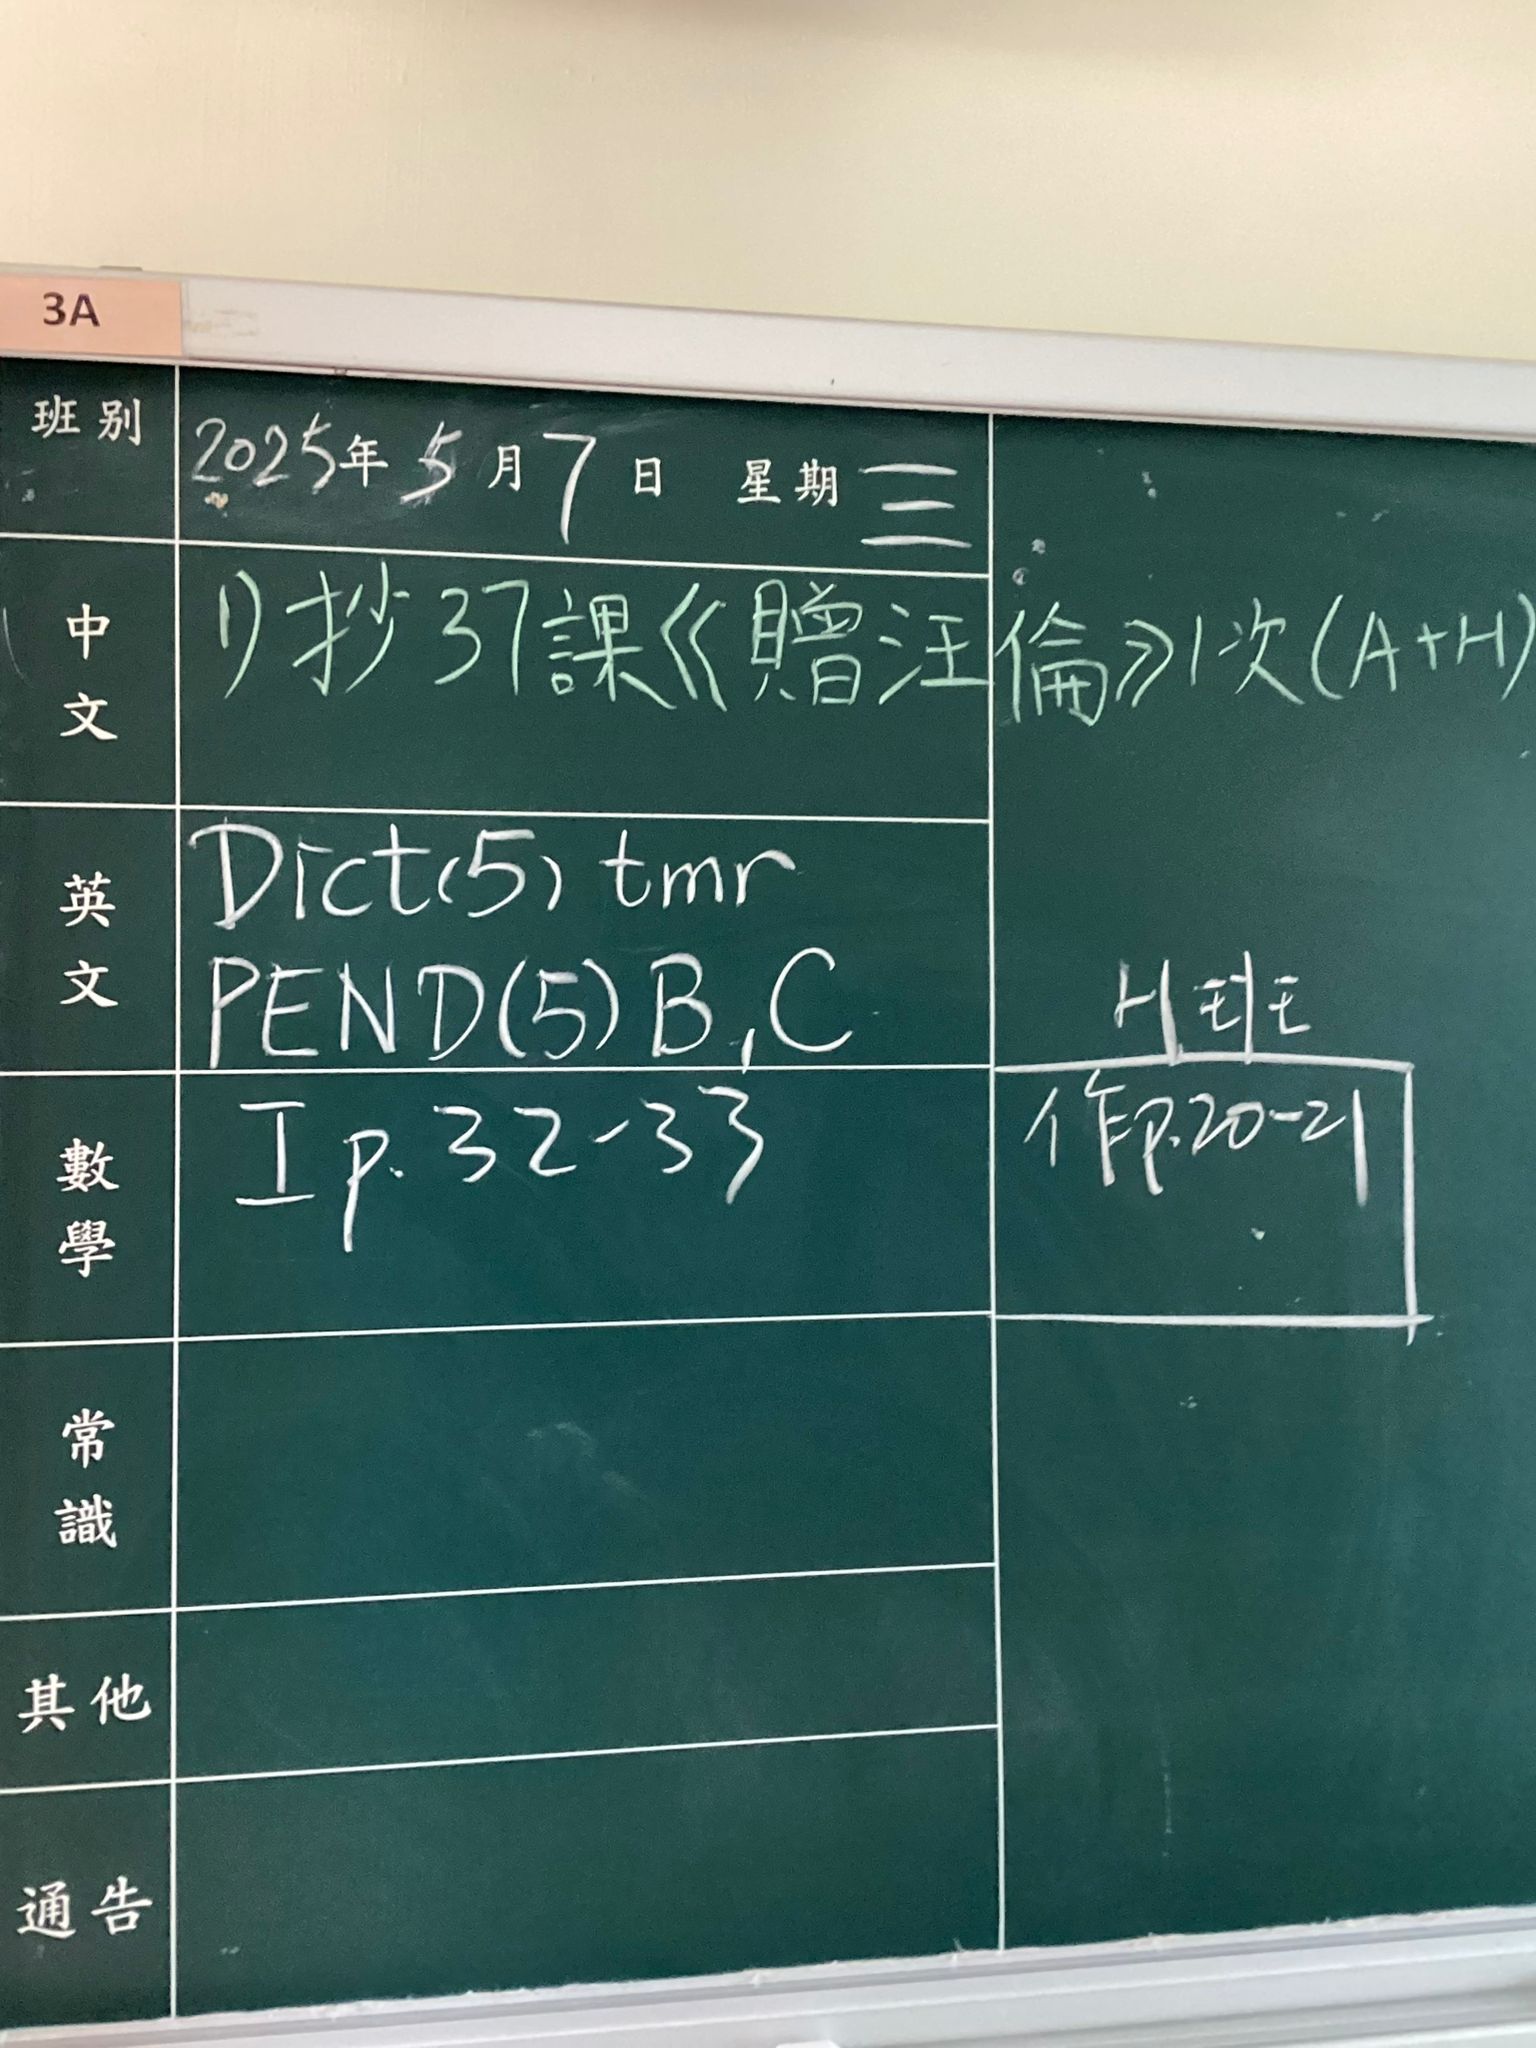 3A
班別 2025年 5月7日 星期三
中文 1) 抄37課《贈汪倫》1次(A+H)
英文 Dict(5) tmr
PEND(5) B, C
H班
數學 I p. 32-33 作p.20-21
常識
其他
通告